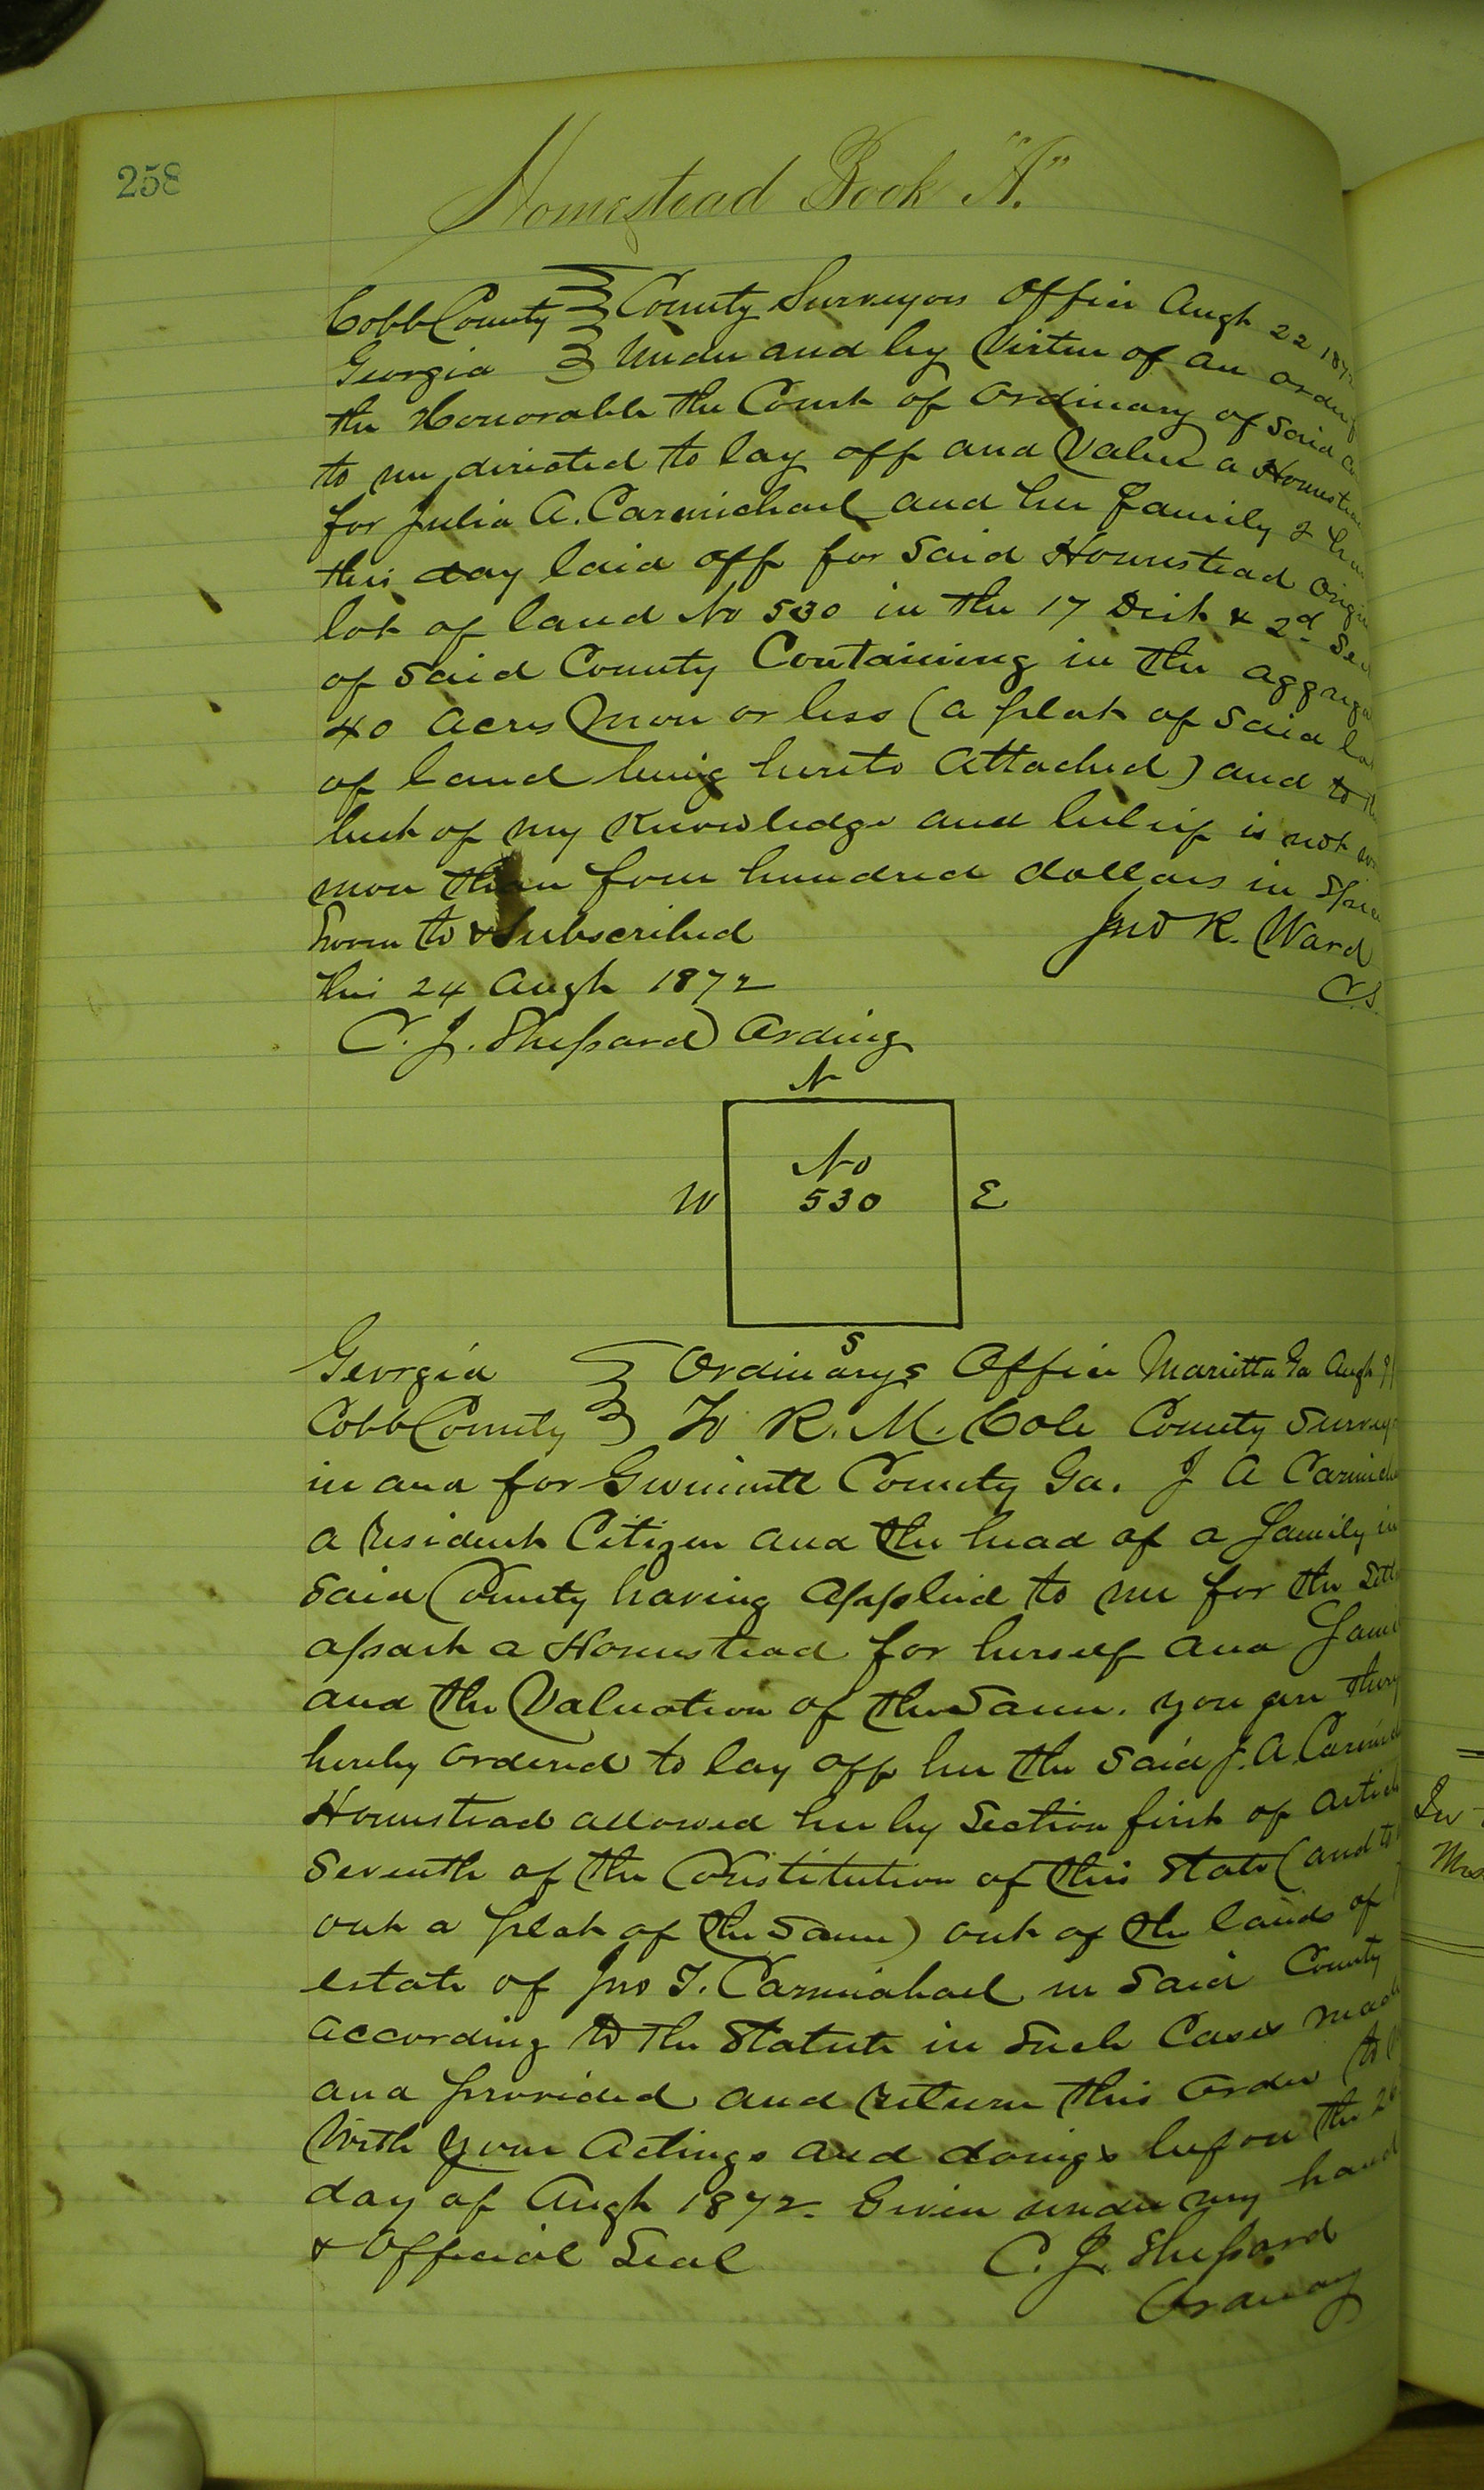 258
Homestead Book "A."
Cobb County County Surveyors Office Augt 22 187
Georgia Under and by Virtue of an order
the Honorable the Court of Ordinary of Said Co
to me directed to lay off and Value a Homestea
for Julia A. Carmichael and her family I ha
this day laid off for Said Homestead Origin
lot of land No 530 in the 17 Dist & 2d. Sec
of Said County Containing in the aggrega
40 Acres More or less (a plat of Said lo
of land being hereto Attached) and to th
best of my Knowledge and belief is not wo
more than four hundred dollars in Spec
Sworn to & Subscribed Jno R. Ward
this 24 Augt 1872 C.S.
C. J. Shepard Ordinry
N
No
W 530 E
S
Georgia Ordinarys Office Marietta Ga Augt
Cobb County To R. M. Cole County Survey
in and for Gwinntt County Ga. J A Carmich
a Resident Citizen and the head of a family in
Said County having Applied to me for the Sett
apart a Homestead for herself and Fami
and the Valuation of the Same. you are
hereby ordered to lay off her the Said J. A. Carmich
Homestead allowed her by Section first of Artich
Seventh of the Constitution of this State (and
out a plat of the Same) out of the lands of
estate of Jno T. Carmichael in Said County
according to the Statute in Such Cases mad
and provided and Return this Order (to
With your Actings and doings before the 2
day of Augt 1872. Given under my hand
& Official Seal C. J. Shepard
Ordinary
In
Mrs